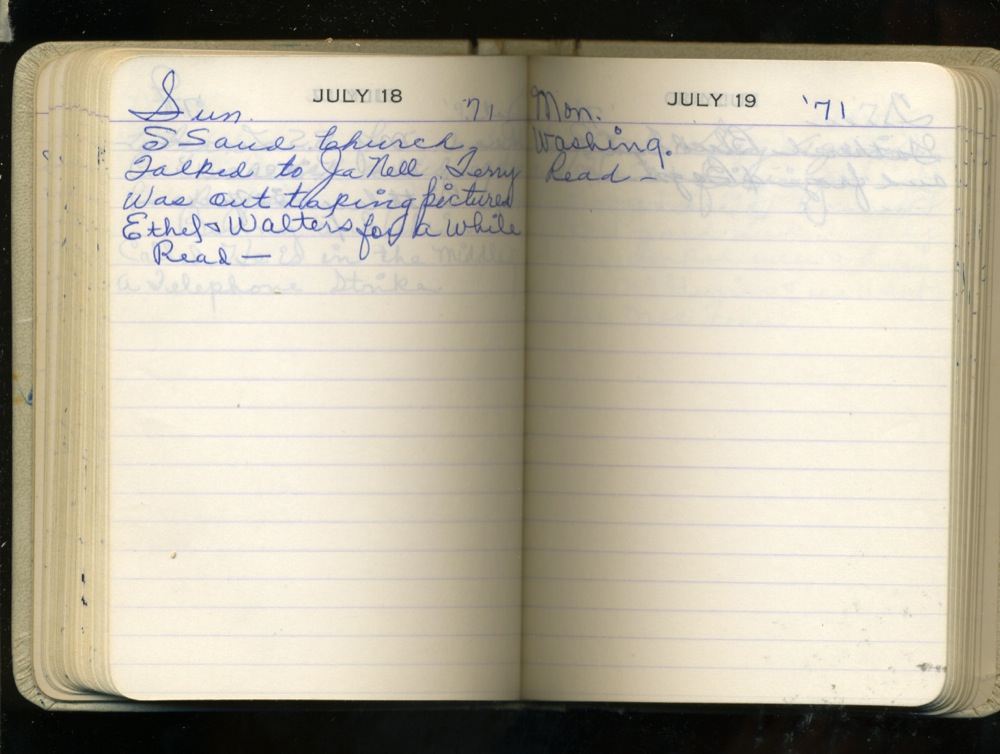 JULY 18
Sun. '71
S S and Church
Talked to JaNell. Terry
was out taking pictures
Ethel & Walters for a while
Read —
in the Middle
a Telephone Strike
JULY 19
Mon. '71
Washing.
Read —